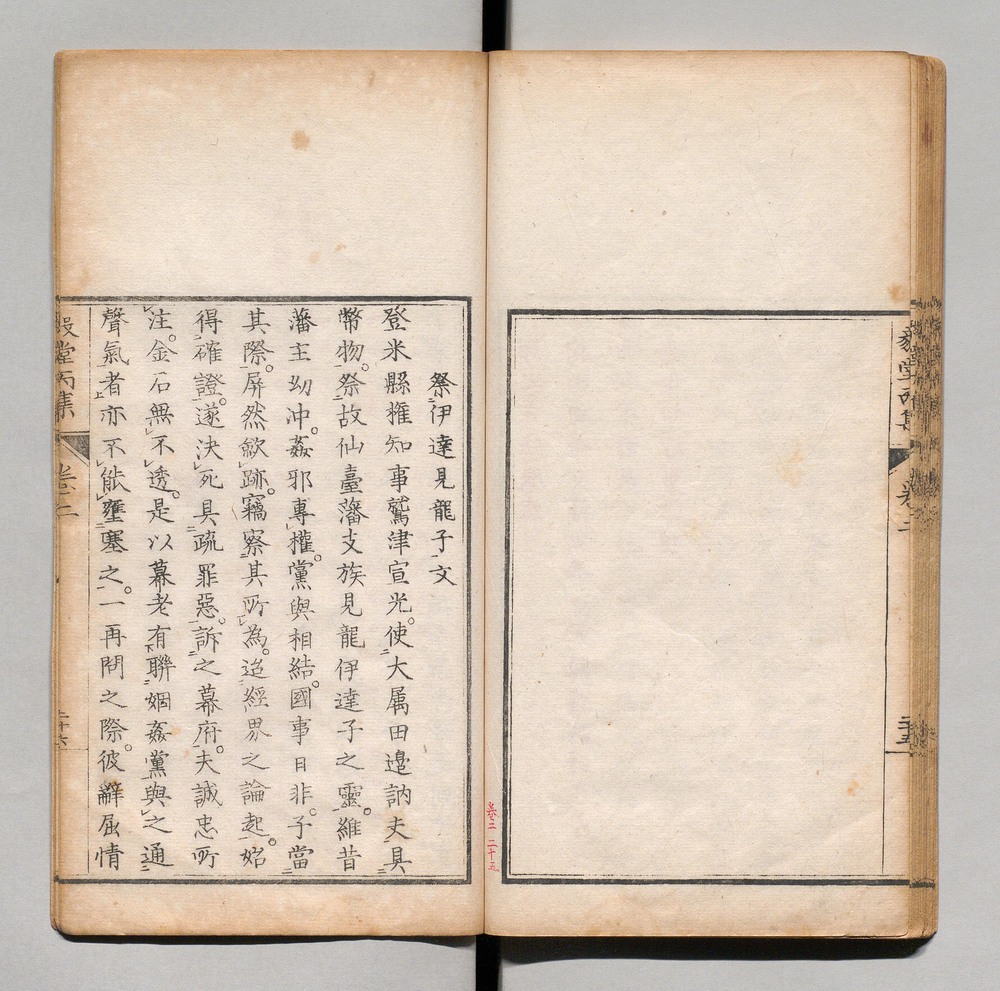 毅堂丙集
卷二
二十五
卷二 二十五
祭伊達見龍子文
登米縣權知事鷲津宣光。使大属田邉訥夫具
幣物。祭故仙臺藩支族見龍伊達子之靈。維昔
藩主幼冲。姦邪專權。黨與相結。國事日非。子當
其際。屏然歛跡。竊察其所為。迨經界之論起。始
得確證。遂決死具疏罪惡。訴之幕府。夫誠忠所
注。金石無不透。是以幕老有聯姻姦黨與之通
聲氣者亦不能壅塞之。一再問之際。彼辭屈情
毅堂丙集
卷二
二十六